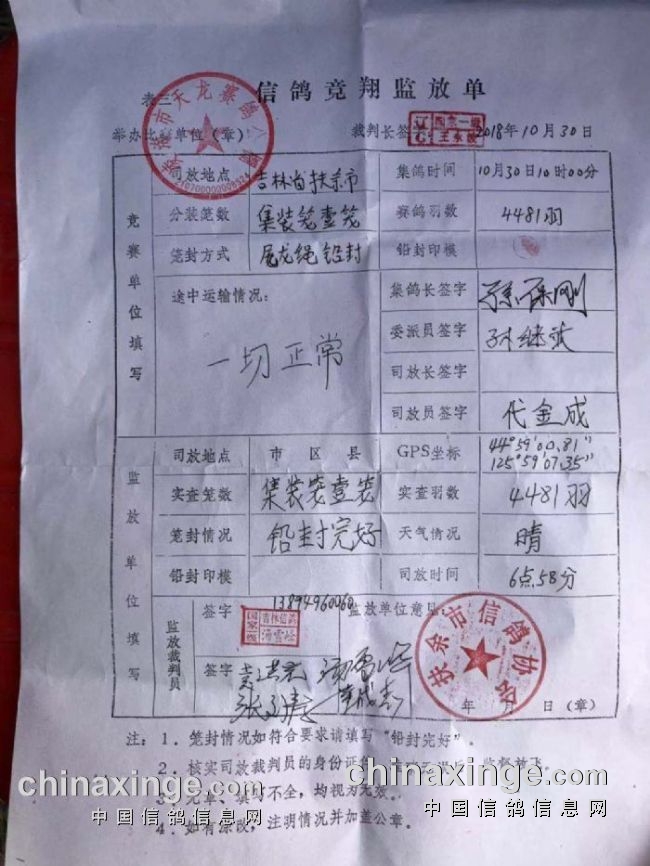 表三
信鸽竞翔监放单
举办比赛单位(章)
裁判长签
2018年10月30日
天龙赛鸽
竞赛单位填写
司放地点 吉林省扶余市 集鸽时间 10月30日10时00分
分装笼数 集装笼壹笼 赛鸽羽数 4481羽
笼封方式 尾龙绳铅封 铅封印模
途中运输情况: 一切正常
集鸽长签字
委派员签字
司放长签字
司放员签字 代金成
监放单位填写
司放地点 市区县 GPS坐标 44°59′00.81″
125°59′07.35″
实查笼数 集装笼壹笼 实查羽数 4481羽
笼封情况 铅封完好 天气情况 晴
铅封印模 司放时间 6点58分
监放裁判员
签字 13894960060 监放单位意见
国家级 吉林信鸽
签字
扶余市信鸽协会
年 月 日(章)
注: 1.笼封情况如符合要求请填写“铅封完好”。
2.核实司放裁判员的身份证
监督放飞。
3.无单、填写不全,均视为无效。
4.如有涂改,注明情况并加盖公章。
chinaxinge.com
中国信鸽信息网
chinaxinge.com
中国信鸽信息网